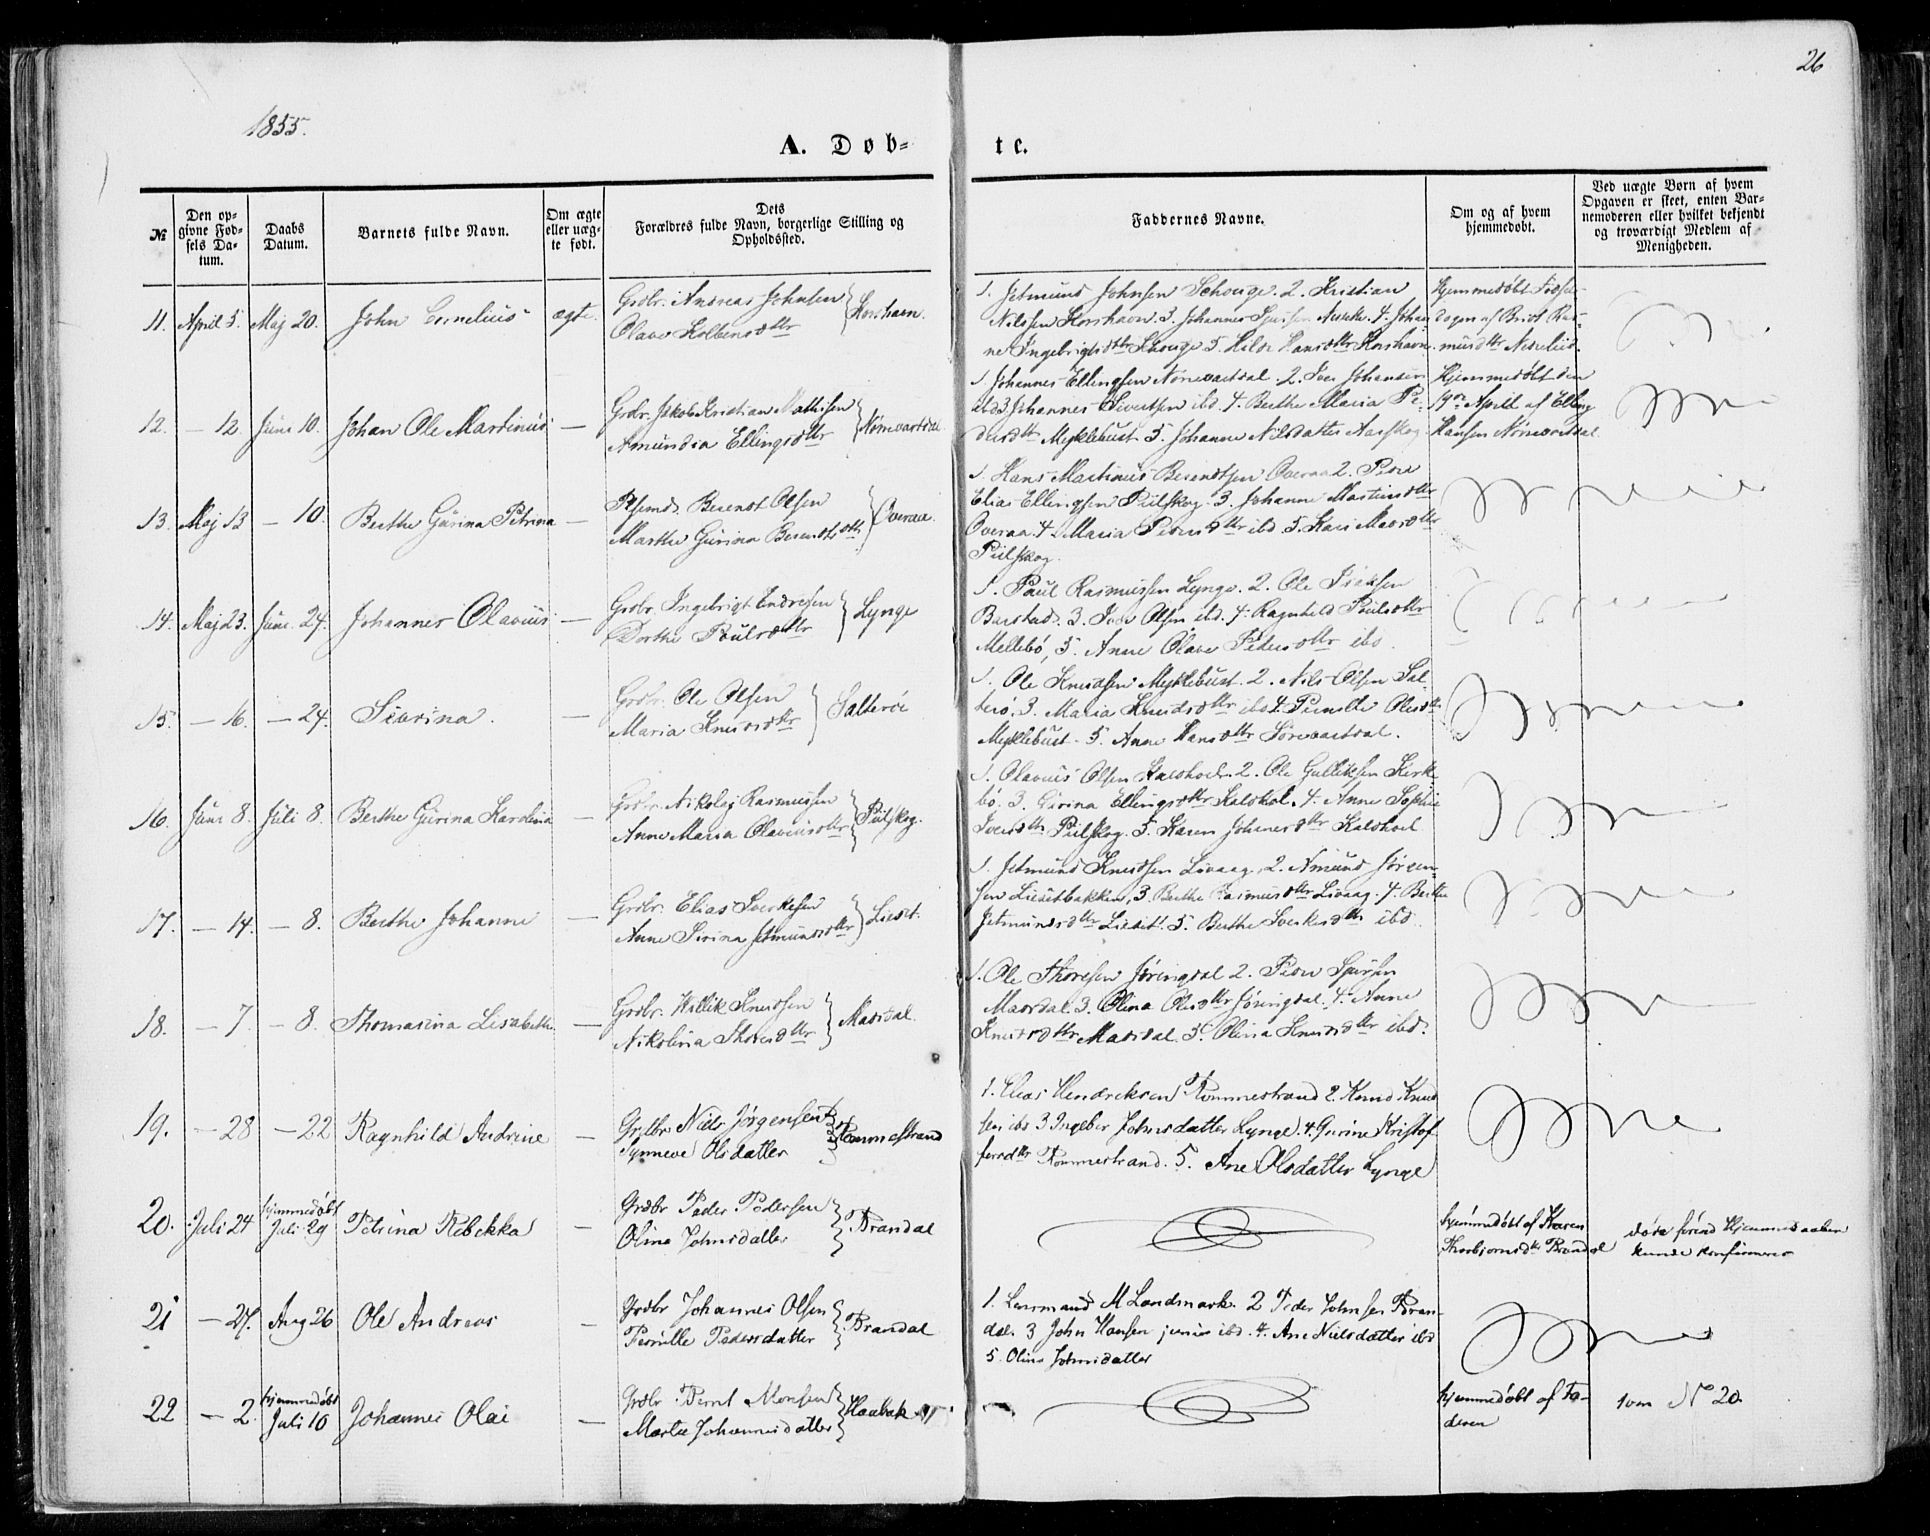 26
1855.
A. Døb- te.
№
Den opgivne Fødsels Datum.
Daabs Datum.
Barnets fulde Navn.
Om ægte eller uægte født.
Dets Forældres fulde Navn, borgerlige Stilling og Opholdssted.
Faddernes Navne.
Om og af hvem hjemmedøbt.
Ved uægte Børn af hvem Opgaven er skeet, enten Barnemoderen eller hvilket bekjendt og troværdigt Medlem af Menigheden.
11. April 5. Maj 20. John Cornelius ægte. Grdbr. Andreas Johnsen
Olave Kolbensdttr } Korshavn.
1. Jetmund Johnsen Schouge. 2. Kristian
Nilssen Korshavn 3. Johannes 4. Johan
ne Ingebrigtsdttr Schouge 5. Hilde Hansdttr Korshavn.
Hjemmedøbt
dagen af Brit Ras-
musdttr
12. — 12. Juni 10. Johan Ole Martinus — Grdbr. Jakob Kristian Mathisen
Amundia Ellingsdttr } Nørrevartdal
1. Johannes Ellingsen Nørrevartdal. 2. Iver Johansen
ibd 3. Johannes Sivertsen ibd 4. Berthe Maria Pe-
dersdtt Myklebust 5. Johanne Nilsdatter Aarskog
Hjemmedøbt den
19de April af Elling
Hansen Nørrevartdal.
13. Maj 13 — 10. Berthe Gurina Petrina — Berendt Olsen
Marthe Gurina Berendtsdtt } Overaa.
1. Hans Martinus Berendtsen Overaa 2. Peder
Elias Ellingsen Pilskog. 3. Johanne Martinsdttr
Overaa. 4. Maria Pedersdttr ibd 5. Kari Madsdttr
Pilskog.
14. Maj 23. Juni 24. Johannes Olavius — Grdbr. Ingebrigt Endresen
Dorthe Poulsdttr } Lynge
1. Paul Rasmussen Lynge. 2. Ole
Barstad. 3. Iver Olsen ibd. 4. Ragnhild Poulsdttr
Mellebø, 5. Anne Olave Pedersdttr ibd.
15. — 16. — 24. Sivrina. — Grdbr. Ole Olsen
Maria Knudsdttr } Salterøe
1. Ole Knudsen Myklebust. 2. Nils Olsen Sal-
terø, 3. Maria Knudsdttr ibd 4. Pernille Olesdtt
Myklebust. 5. Anne Hansdttr Sørevartdal.
16. Juni 8. Juli 8. Berthe Gurina Karolina — Grdbr. Nikolaj Rasmussen
Anne Maria Olaviusdttr } Pilskog.
1. Olavius Olsen 2. Ole Gulliksen Kirke-
bø. 3. Gurina Ellingsdttr 4. Anne Sophie
Iversdtt Pilskog. 5. Karen Johnsdttr
17. — 14. — 8. Berthe Johanne — Grdbr. Elias Sverkesen
Anne Sirina Jetmundsdttr } Lieset.
1. Jetmund Knudsen Livaag. 2. Amund Jørgen-
sen Liesetbakken, 3. Berthe Rasmusdttr Livaag. 4. Berthe
Jetmundsdttr Lieset. 5. Berthe Sverkesdtt ibd.
18. — 7. — 8. Thomasina Lisabeth. — Grdbr. Willik Knudsen
Nikolina Thoresdttr } Masdal.
1. Ole Thoresen Jøringdal 2. Peder
Masdal. 3. Olina Olesdttr Jøringdal. 4. Anne
Knudsdttr Masdal. 5. Olina Knudsdttr ibd.
19. — 28 — 22 Ragnhild Andrine — Grdbr. Niels Jørgensen
Synneve Olsdatter } Rommestrand
1. Elias Hendriksen Rommestrand 2. Knud Knud
sen ibd 3 Ingeber Johnsdatter Lynge. 4. Gurine Kristof
fersdttr Rommestrand. 5. Ane Olsdatter Lynge
20. Juli 24 hjemmedøbt
Juli 29 Petrina Rebekka — Grdbr Peder Pedersen
Oline Johnsdatter } Brandal
hjemmedøbt af Karen
Thorbjørnsdtr Brandal
døde førend Hjemmedaaben
kunde konfirmeres
21 — 27. Aug 26 Ole Andreas — Grdbr Johannes Olsen
Pernille Pedersdatter } Brandal
1. Lensmand M Landmark. 2 Peder Johnsen Bran-
dal. 3 John Hansen junior ibd. 4. Ane Nielsdatter ibd
5. Oline Johnsdatter
22 — 2. hjemmedøbt
Juli 10 Johannes Olai — Grdbr Bernt Monsen
Marte Johannesdatter } Haabak
hjemmedøbt af Fa-
deren
som N° 20.